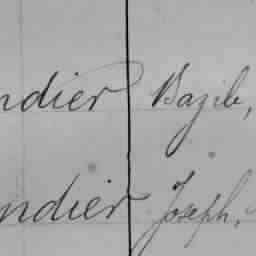 ndier Bazile,
ndier Joseph,